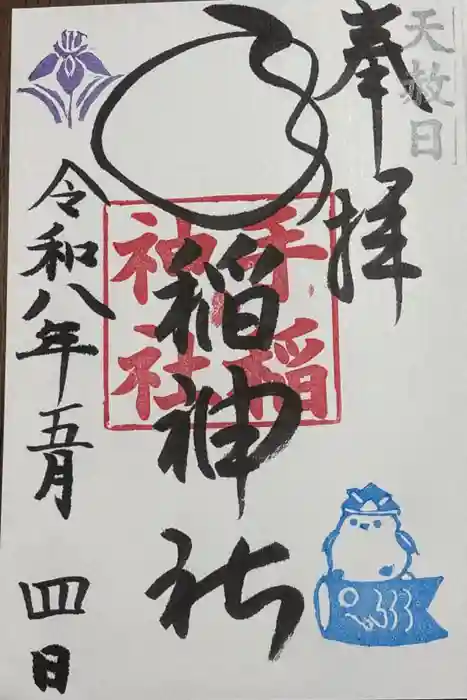 天赦日
奉拝
手稲
神社
手稲神社
令和八年五月四日